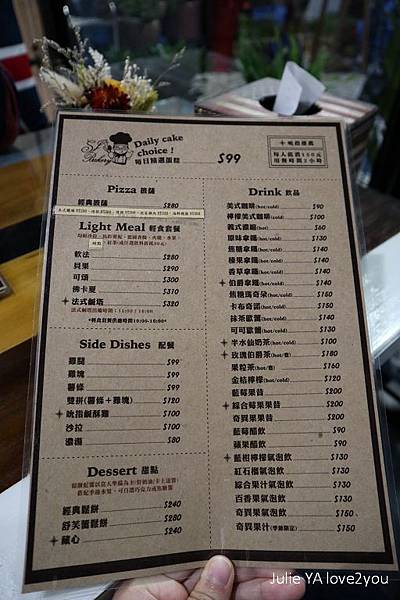 Bakery
Daily cake
choice !
每日精選蛋糕
$99
每人低消150元
用餐時間2小時
Pizza 披薩
經典披薩 $280
Light Meal 輕食套餐
軟法 $280
貝果 $290
可頌 $300
佛卡夏 $310
法式鹹塔 $320
Side Dishes 配餐
雞腿 $99
雞塊 $99
薯條 $99
雙拼(薯條+雞塊) $120
吮指鹹酥雞 $100
沙拉 $100
濃湯 $80
Dessert 甜點
經典鬆餅 $240
舒芙蕾鬆餅 $280
藏心 $240
Drink 飲品
美式咖啡(hot/cold) $90
檸檬美式咖啡(hot/cold) $100
義式濃縮(hot) $60
原味拿鐵(hot/cold) $130
焦糖拿鐵(hot/cold) $140
榛果拿鐵(hot/cold) $140
香草拿鐵(hot/cold) $140
伯爵拿鐵(hot/cold) $140
焦糖瑪奇朵(hot/cold) $150
卡布奇諾(hot/cold) $150
抹茶歐蕾(hot/cold) $140
可可歐蕾(hot/cold) $130
半水仙奶茶(hot/cold) $100
玫瑰伯爵茶(hot/壺) $180
果粒茶(hot/壺) $160
金桔檸檬(hot/cold) $120
藍莓果昔 $200
綜合莓果果昔 $200
奇異果果昔 $200
藍莓醋飲 $90
蘋果醋飲 $90
藍柑檸檬氣泡飲 $130
紅石榴氣泡飲 $130
綜合果汁氣泡飲 $130
百香果氣泡飲 $130
奇異果氣泡飲 $150
奇異果汁(季節限定) $150
Julie YA love2you